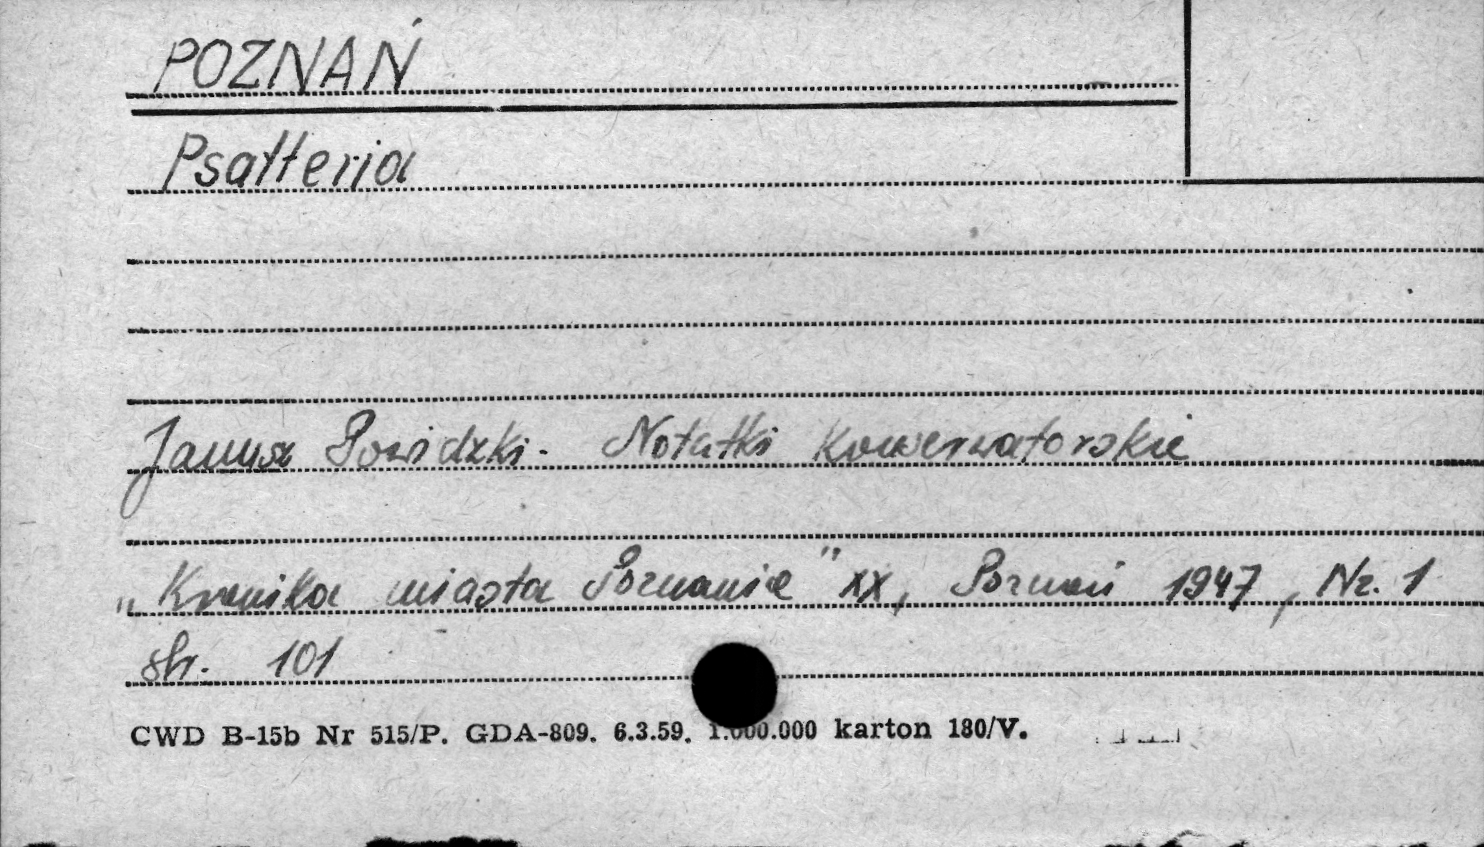 POZNAŃ
Psałteria
Janusz Powidzki. Notatki konserwatorskie
"Kronika miasta Poznania" XX, Poznań 1947, Nr. 1
str. 101
CWD B-15b Nr 515/P. GDA-809. 6.3.59. 1.000.000 karton 180/V.